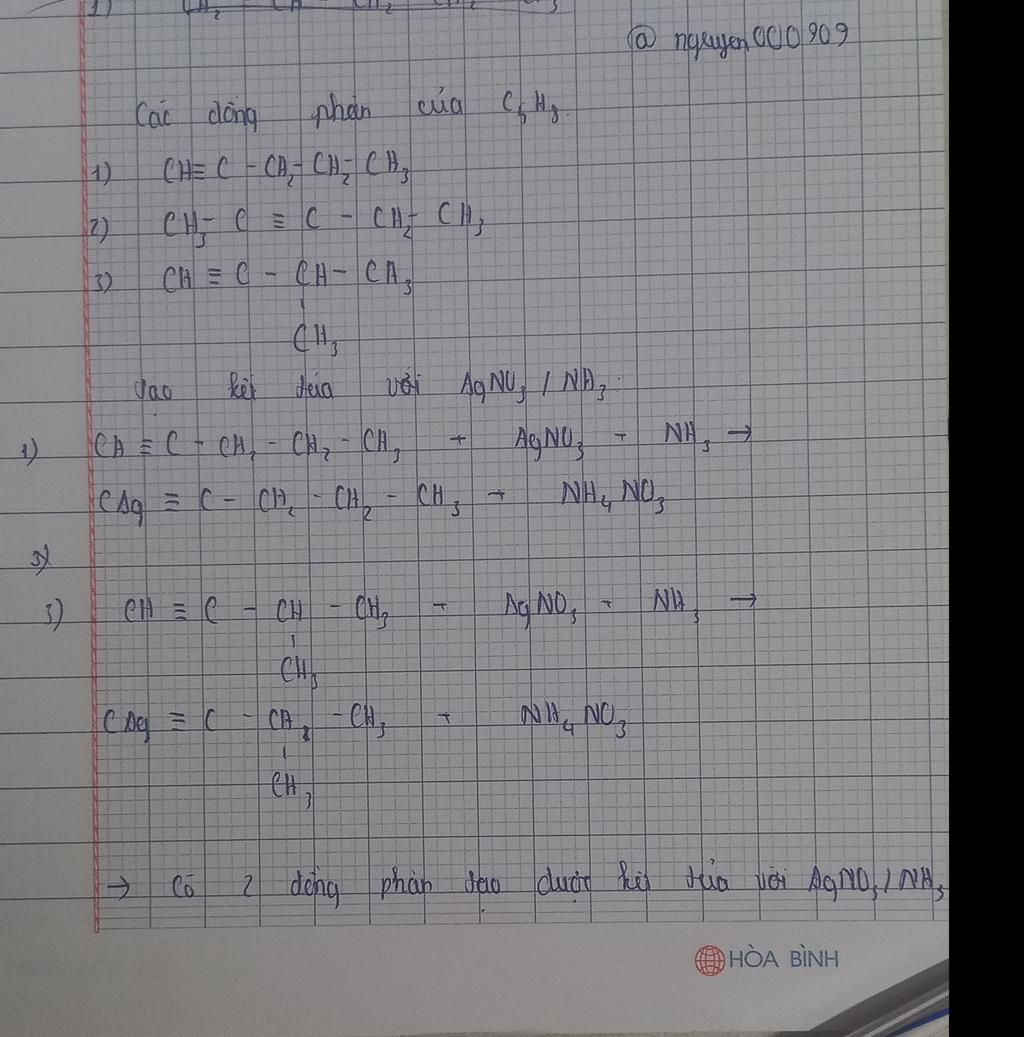 1) CH₂ = CH - CH₂ - CH₂ - CH₃
@ nguyen000909
Các đồng phân của C₅H₈.
1) CH≡C - CH₂ - CH₂ - CH₃
2) CH₃ - C ≡ C - CH₂ - CH₃
3) CH ≡ C - CH - CH₃
CH₃
tạo kết tủa với AgNO₃ / NH₃.
1) CH ≡ C - CH₂ - CH₂ - CH₃ + AgNO₃ + NH₃ →
CAg ≡ C - CH₂ - CH₂ - CH₃ + NH₄NO₃
3)
3) CH ≡ C - CH - CH₃ + AgNO₃ + NH₃ →
CH₃
CAg ≡ C - CH - CH₃ + NH₄NO₃
CH₃
→ Có 2 đồng phân tạo được kết tủa với AgNO₃ / NH₃
HÒA BÌNH